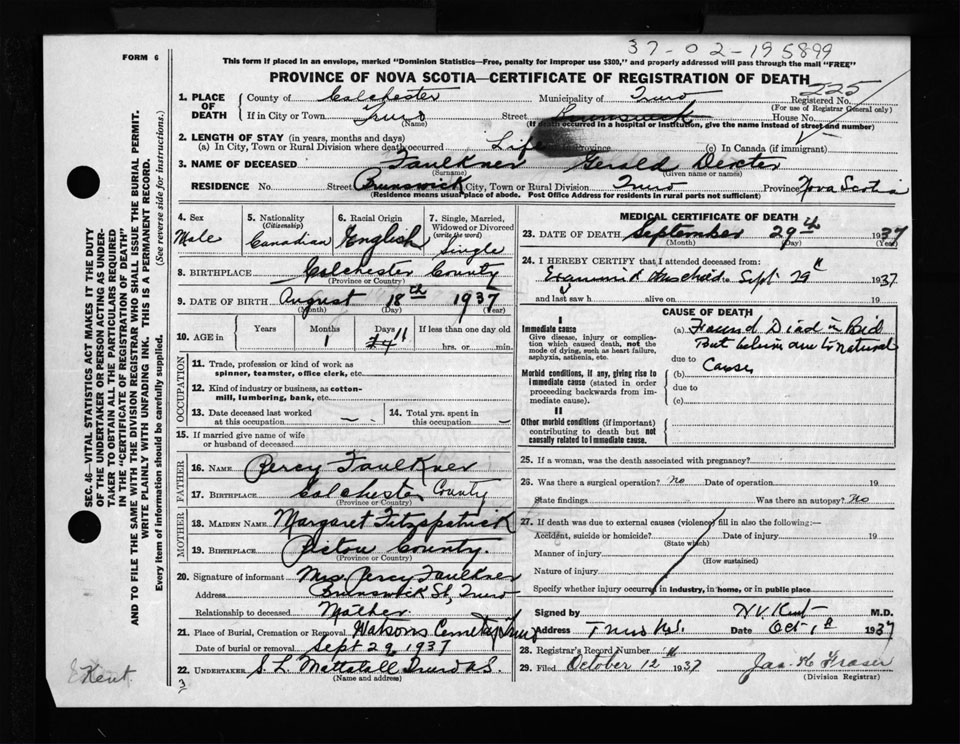 37-02-195899
FORM 6
This form if placed in an envelope, marked "Dominion Statistics—Free, penalty for improper use $300," and properly addressed will pass through the mail "FREE"
PROVINCE OF NOVA SCOTIA—CERTIFICATE OF REGISTRATION OF DEATH
225
1. PLACE OF DEATH County of Colchester Municipality of Truro Registered No.
(For use of Registrar General only)
If in City or Town Truro Street Brunswick House No.
(Name) (If death occurred in a hospital or institution, give the name instead of street and number)
2. LENGTH OF STAY (in years, months and days)
(a) In City, Town or Rural Division where death occurred Life Province (c) In Canada (if immigrant)
3. NAME OF DECEASED Faulkner Gerald Dexter
(Surname) (Given name or names)
RESIDENCE No. Street Brunswick City, Town or Rural Division Truro Province Nova Scotia
(Residence means usual place of abode. Post Office Address for residents in rural parts not sufficient)
4. Sex Male
5. Nationality (Citizenship) Canadian
6. Racial Origin English
7. Single, Married, Widowed or Divorced (write the word) Single
8. BIRTHPLACE Colchester County
(Province or Country)
9. DATE OF BIRTH August 18th 1937
(Month) (Day) (Year)
10. AGE in Years Months 1 Days 11 If less than one day old
hrs. or min.
OCCUPATION
11. Trade, profession or kind of work as
spinner, teamster, office clerk, etc.
12. Kind of industry or business, as cotton-
mill, lumbering, bank, etc.
13. Date deceased last worked at this occupation —
14. Total yrs. spent in this occupation —
15. If married give name of wife
or husband of deceased
FATHER
16. NAME Percy Faulkner
17. BIRTHPLACE Colchester County
(Province or Country)
MOTHER
18. MAIDEN NAME Margaret Fitzpatrick
19. BIRTHPLACE Pictou County.
(Province or Country)
20. Signature of informant Mrs. Percy Faulkner
Address Brunswick St, Truro
Relationship to deceased Mother
21. Place of Burial, Cremation or Removal Watsons Cemetery Truro
Date of burial or removal Sept 29, 1937
22. UNDERTAKER S. L. Mattatall Truro N.S.
(Name and address)
MEDICAL CERTIFICATE OF DEATH
23. DATE OF DEATH September 29th 1937
(Month) (Day) (Year)
24. I HEREBY CERTIFY that I attended deceased from:
Sept 29th 1937
and last saw h alive on 19
CAUSE OF DEATH
I
Immediate cause
Give disease, injury or complication which caused death, not the mode of dying, such as heart failure, asphyxia, asthenia, etc.
Morbid conditions, if any, giving rise to immediate cause (stated in order proceeding backwards from immediate cause).
II
Other morbid conditions (if important) contributing to death but not causally related to immediate cause.
(a) Found Dead in Bed
But due to natural
due to Causes
(b)
due to
(c)
25. If a woman, was the death associated with pregnancy?
26. Was there a surgical operation? No Date of operation 19
State findings Was there an autopsy? No
27. If death was due to external causes (violence) fill in also the following:—
Accident, suicide or homicide? Date of injury 19
(State which)
Manner of injury
(How sustained)
Nature of injury
Specify whether injury occurred in industry, in home, or in public place
Signed by H.V. Kent M.D.
Address Truro N.S. Date Oct 1st 1937
28. Registrar's Record Number
29. Filed October 12th 1937 Jas. K. Fraser
(Division Registrar)
SEC. 46—VITAL STATISTICS ACT MAKES IT THE DUTY
OF THE UNDERTAKER OR PERSON ACTING AS UNDER-
TAKER TO OBTAIN ALL THE PARTICULARS REQUIRED
IN THE "CERTIFICATE OF REGISTRATION OF DEATH"
AND TO FILE THE SAME WITH THE DIVISION REGISTRAR WHO SHALL ISSUE THE BURIAL PERMIT.
WRITE PLAINLY WITH UNFADING INK. THIS IS A PERMANENT RECORD.
Every item of information should be carefully supplied. (See reverse side for instructions.)
Kent
3